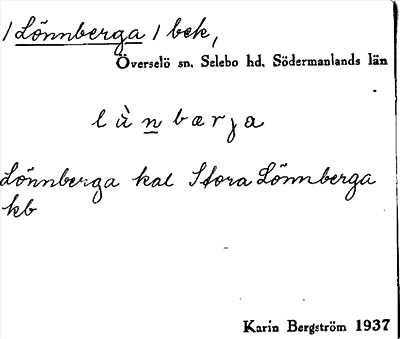 / Lönnberga / bek,
Överselö sn, Selebo hd, Södermanlands län
l ù n b æ r j a
Lönnberga kal Stora Lönnberga
kb
Karin Bergström 1937